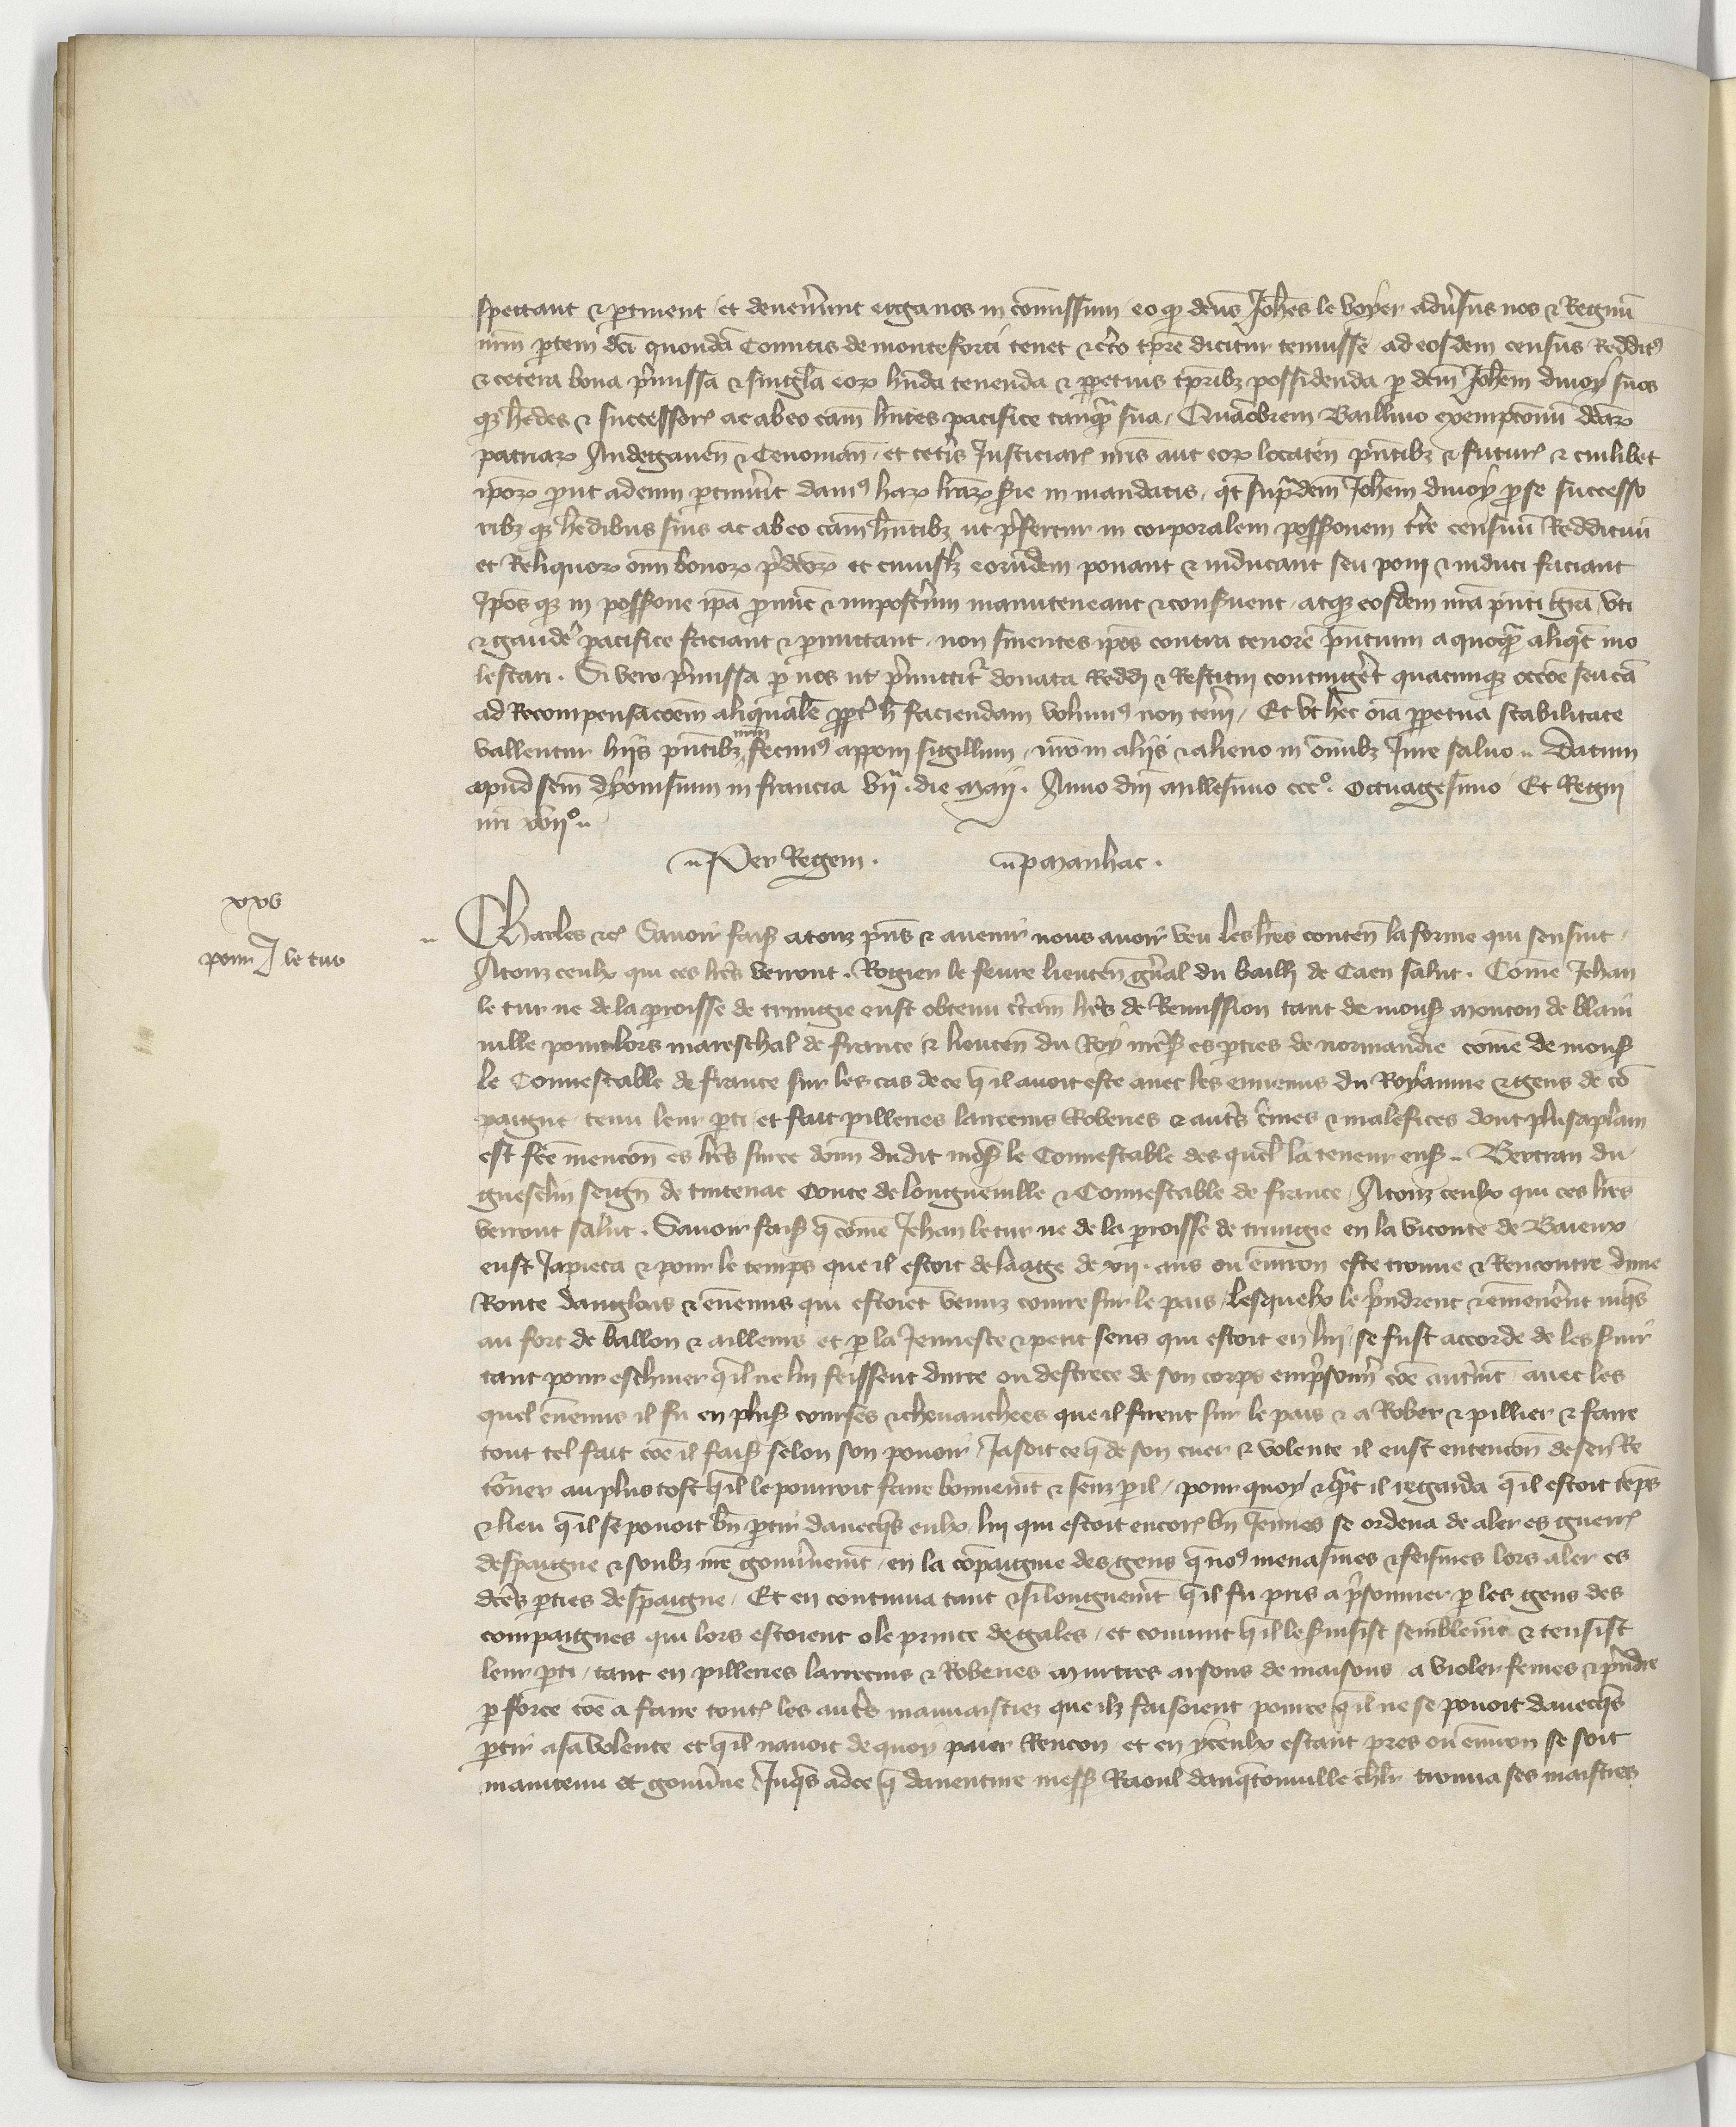 spettant & ptinent / et deven̄unt erga nos in com̄issum / eo qz dc̄us Joh̄es le voyer adv̄sus nos & Regnū
nr̄m ptem dc̄i quondā Comitis de monteforti tenet & c̄to tp̄re dicitur tenuisse / ad eosdem census Reddit9
& cetera bona p̄missa & singl̄a eoꝝ hn̄da tenenda & ppetuis tp̄ribz possidenda p dc̄m Joh̄em divoy suos
qz h̄edes & successor ac ab eo cām hn̄tes pacifice tanq̄ sua / Quāobrem Baillivo exempcōnū dc̄aꝝ
patriaꝝ Andegaven̄ & Cenoman̄ / et ceter̄is Justiciar̄ nr̄is aut eoꝝ locaten̄ pn̄tibz & futur̄ & cuilibet
ip̄oꝝ prout ad eum ptinūit dam9 haꝝ lr̄aꝝ s̄ie in mandatis / qt̄ supͣdc̄m Joh̄em divoy p se successo
ribz qz h̄edibus suis ac ab eo cām hn̄tibz ut p̄fertur in corporalem poss̄ionem tr̄re censuū Reddituū
et Reliquoꝝ om̄i bonoꝝ p̄dc̄oꝝ et cuiuslz eorumdem ponant & inducant seu poni & induci faciant
Ip̄os qz in poss̄ione ip̄a pnūc & imposterum manuteneant & conservent / atqz eosdem nr̄a pn̄ti gr̄a / uti
& gaudē pacifice faciant & pmittant / non sinentes ip̄os contra tenorē pn̄tium a quoqͣ aliqt̄ mo
lestari . Si vero p̄missa p nos ut p̄mittit̄ donata Reddi & Restitui contingēt quacunqz occōe seu cā
ad Recompensacōem aliqualē ppt̄ h̄ faciendam volum9 non tenēi / Et vt hec oīa ppetua stabilitate
vallentur hiis pn̄tibz nr̄m fecim9 apponi sigillum / nr̄o in aliis & alieno in om̄ibz Jure salvo .. Datum
apud sc̄m dyonisium in francia vijͣ . die maij . Anno dn̄i millesimo ccc° . octuagesimo Et Regni
nr̄i xvij° ..
.. Per Regem . .. P manhac .
xxv
pour J le tur
Charles &c̄ Savoir fais̄ a touz pn̄s & avenir nous avoir veu les lr̄es conten̄ la forme qui sensuit /
A touz ceulx qui ces lr̄es verront . Rogier le feure lieuten̄ gn̄al du bailli de Caen salut . Com̄e Jehan
le tur ne de la proisse de trungie eust obtenu c̄tain lr̄es de Remission tant de mons̄ mouton de blain
ville pour lors mareschal de france & lieuten̄ du Roy nr̄e s̄ es pties de normandie com̄e de mons̄
le Connestable de france sur les cas de ce q̄ il avoit este avec les ennemis du Royaume & gens de cō
paigne / tenu leur pti et fait pilleries larrecins Roberies & autr̄s c̄mes & malefices dont plus a plain
est fc̄e menc̄on es lr̄es surce donn̄ dudit mons̄ le Connestable des quel̄ la teneur ens̄ .. Bertran du
guesclin seign̄ de tintenac Conte de longueville & Connestable de france / A touz ceulx qui ces lr̄es
verront salut . Savoir fais̄ q̄ com̄e Jehan le tur ne de la proisse de trungie en la viconte de Baieux
eust Japieca & pour le temps que il estoit de laage de xij . ans ou environ este trouve & Rencontre dune
Route danglois & en̄emis qui estoiēt venuz courre sur le pais / lesquelx le p̄indrent & emmenēnt jusqs̄
au fort de ballon & ailleurs et p la Jeunesce & petit sens qui estoit en lui / se fust accorde de les suir
tant pour eschiver q̄il ne lui feissent durte ou destrece de son corps emp̄sonn̄ cōe aut̄mt̄ / avec les
quel en̄emis il fu en plus̄ courses & chevauchees que il firent sur le pais & a Rober & pillier & faire
tout tel fait cōe il fais̄ selon son povoir / Jasoit ce q̄ de son cuer & volente il eust entenc̄on de sen Re
t̄ner au plus tost q̄il le pourroit faire bonnemt̄ & senz pil / pour quoy & qͣt il regarda q̄il estoit tēps
& lieu q̄il se povoit bn̄ ptir davecqs̄ eulx lui qui estoit encor̄ bn̄ Jeunes se ordena de aler es guerr̄
despaigne & soubz nr̄e gouv̄nemt̄ / en la cōpaignie des gens q̄ no9 menasmes & feismes lors aler es
dc̄es pties despaigne / Et en continua tant & si longuemt̄ q̄il fu pris a p̄sonnier p les gens des
compaignes qui lors estoient o le prince de gales / et convint q̄il le suisist semblemt̄ & tensist
leur pti / tant en pilleries larrecins & Roberies murtres arsons de maisons / a violer fem̄es & p̄ndre
p force cōe a faire tout̄ les autr̄s mauvaistiez que ilz faisoient pource q̄il ne se povoit davecqs̄
ptir a sa volente et q̄il navoit de quoy paier Rencon et en yceulx estant pres ou environ se soit
maintenu et gouv̄ne Jusqs̄ ad ce q̄ daventure mess̄ Raoul danqͤtonville chlr̄ trouva ses maistres